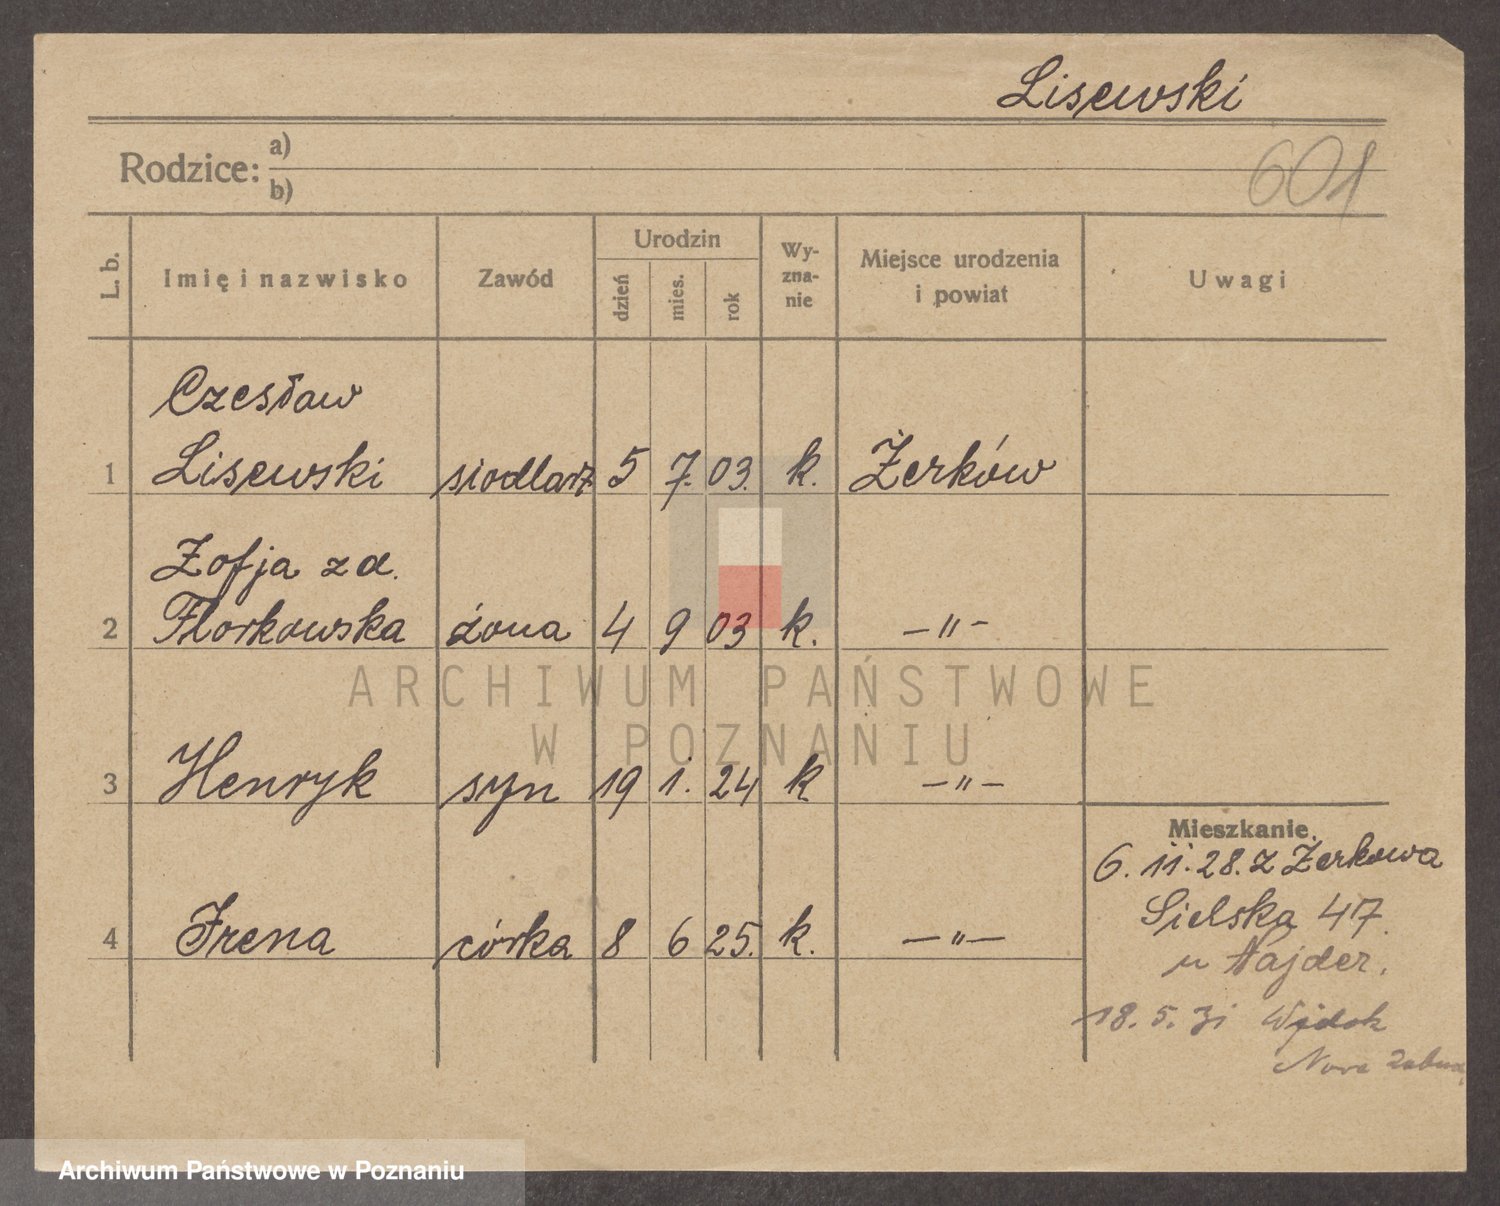 Lisewski
Rodzice: a)
b)
601
L. b.
Imię i nazwisko
Zawód
Urodzin
dzień
mies.
rok
Wy-
zna-
nie
Miejsce urodzenia
i powiat
Uwagi
Czesław
1 Lisewski siodlarz 5 7. 03. k. Żerków
Zofja z d.
2 Florkowska żona 4 9 03 k. — " —
ARCHIWUM PAŃSTWOWE
W POZNANIU
3 Henryk syn 19 1. 24 k — " —
Mieszkanie.
6. 11. 28. z Żerkowa
Sielska 47.
4 Irena córka 8 6 25. k. — " —
u Najder.
18. 5. 31
Nowe Zabud.
Archiwum Państwowe w Poznaniu